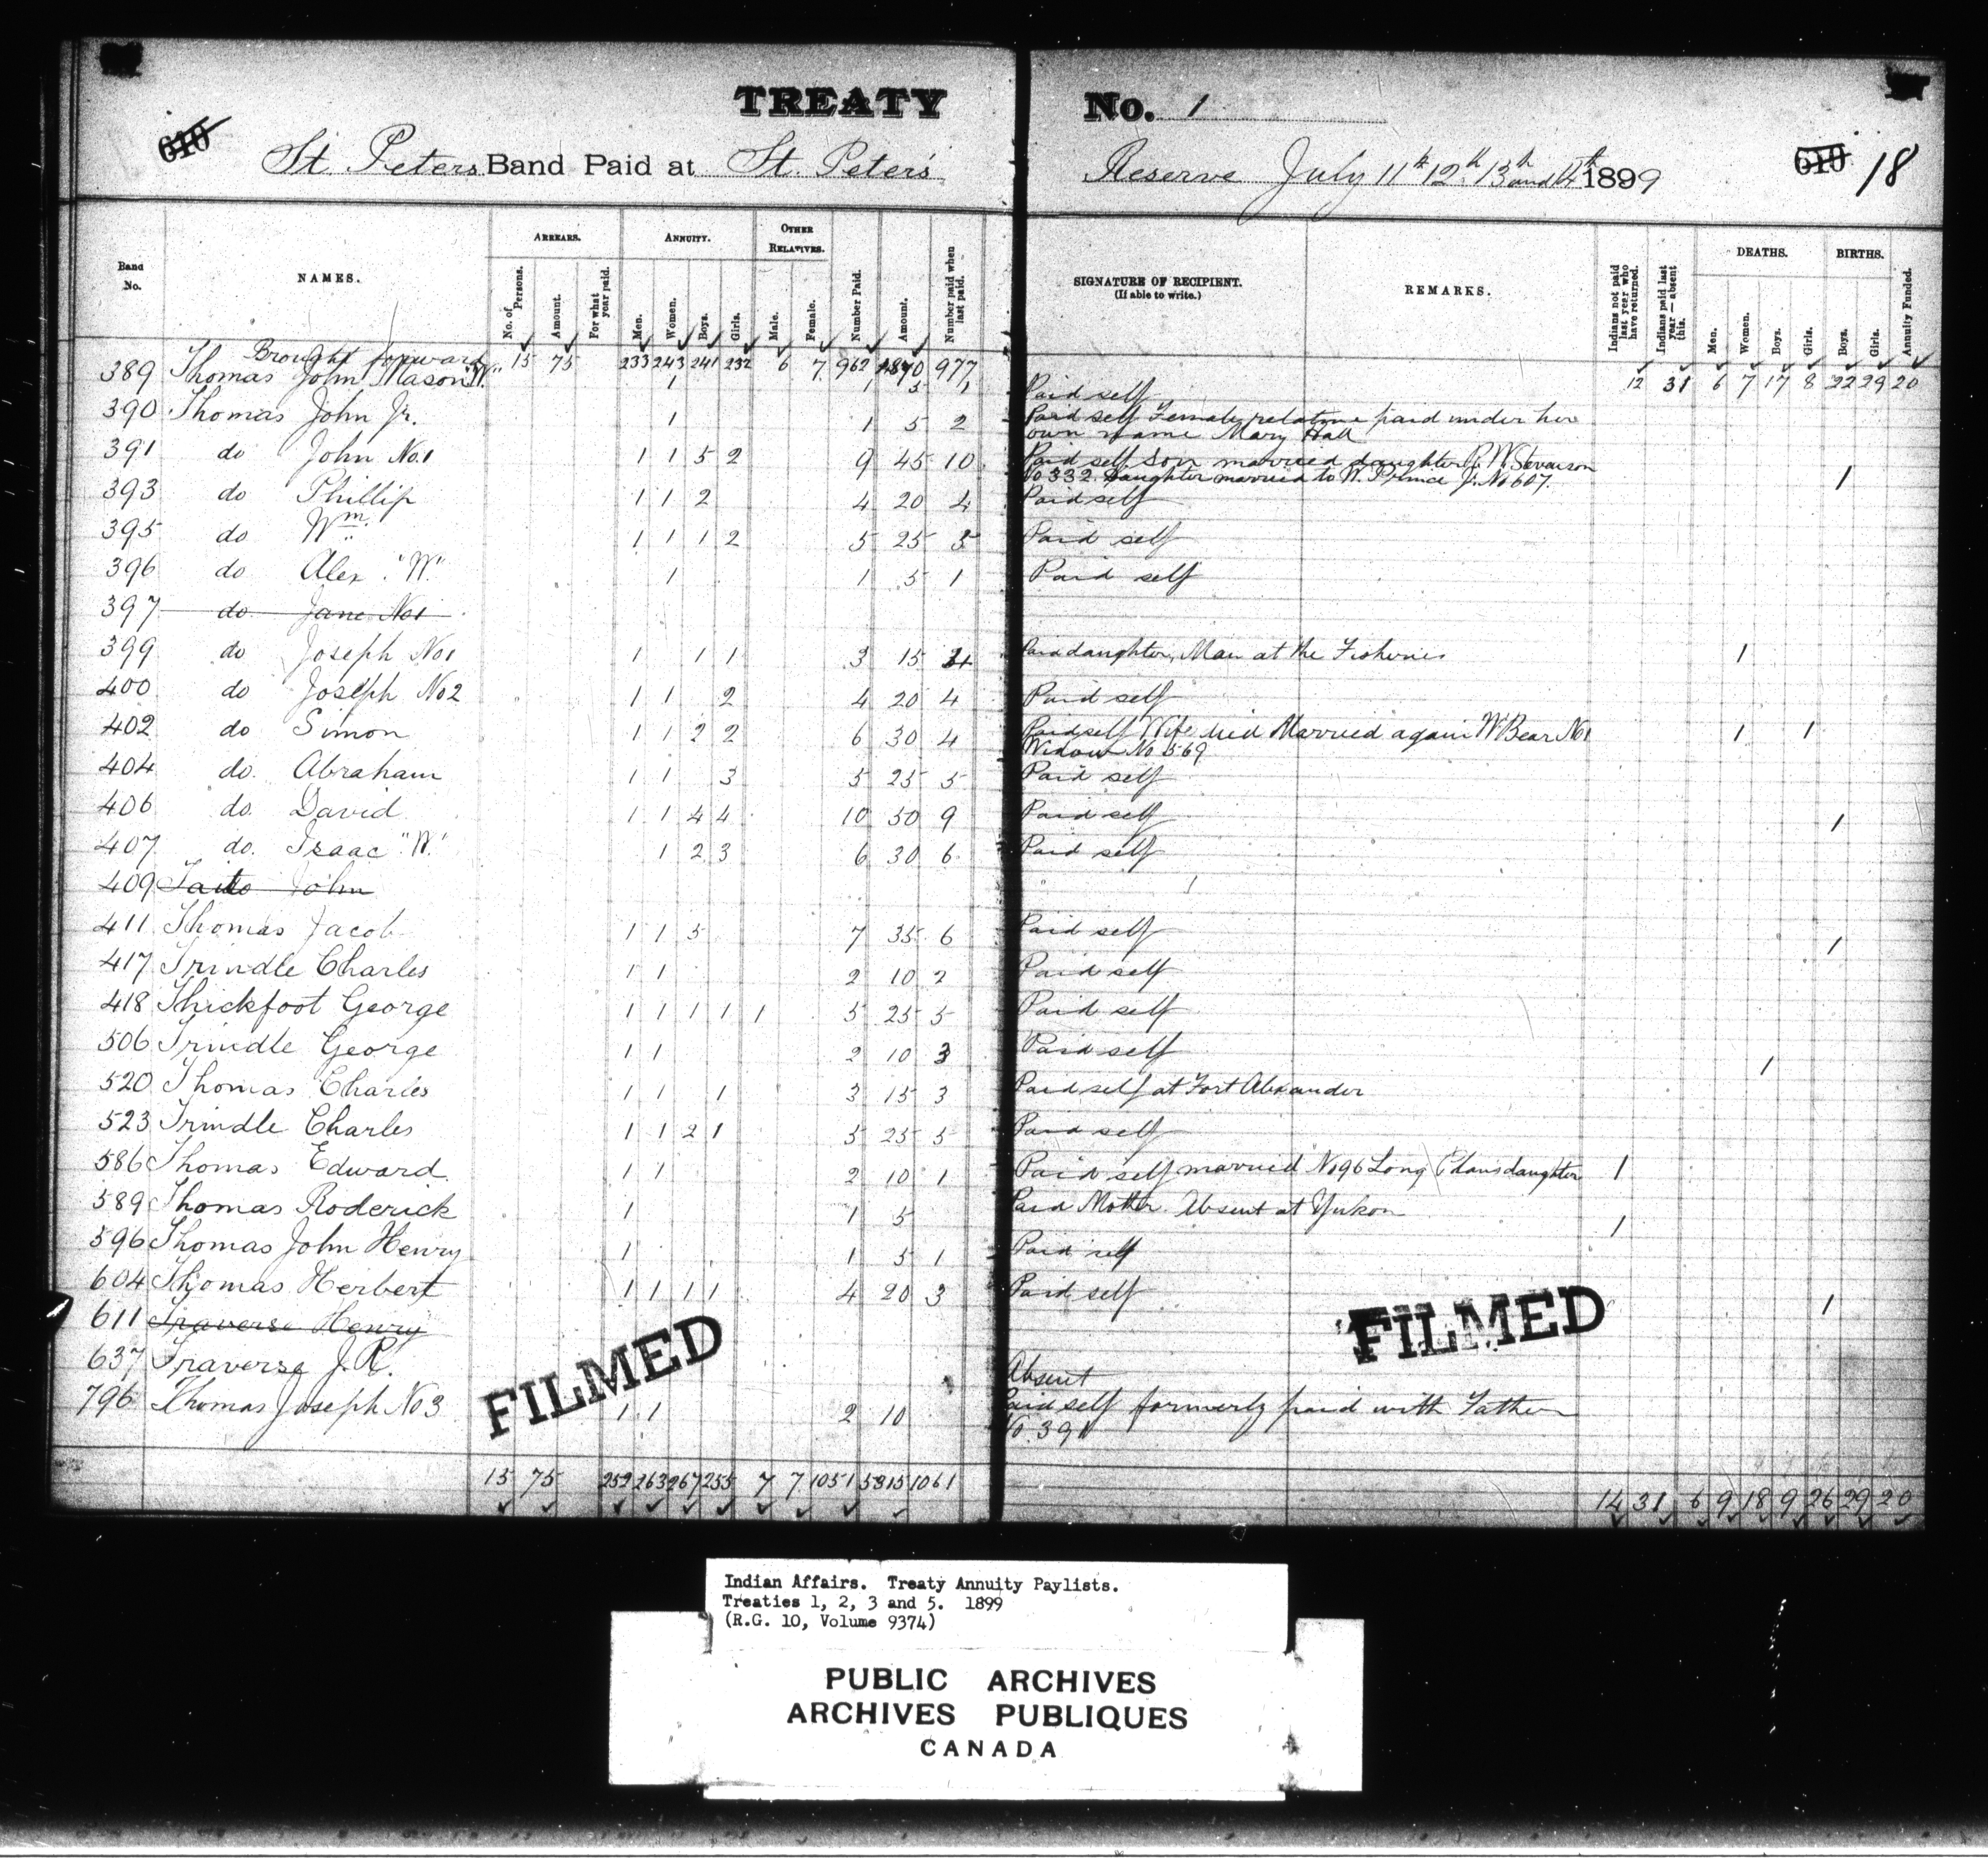 TREATY No. 1
610 St. Peters Band Paid at St. Peter's Reserve July 11th 12th 13th and 14th 1899 610 18
Band No. NAMES. ARREARS. No. of Persons. Amount. For what year paid. ANNUITY. Men. Women. Boys. Girls. OTHER RELATIVES. Male. Female. Number Paid. Amount. Number paid when last paid. SIGNATURE OF RECIPIENT. (If able to write.) REMARKS. Indians not paid last year who have returned. Indians paid last year — absent this. DEATHS. Men. Women. Boys. Girls. BIRTHS. Boys. Girls. Annuity Funded.
Brought forward 15 75 233 243 241 232 6 7 962 4890 977 12 31 6 7 17 8 22 29 20
389 Thomas John Mason "W." 1 1 5 1 Paid self
390 Thomas John Jr. 1 1 5 2 Paid self Female relative paid under her
own name Mary Hall
391 do John No.1 1 1 5 2 9 45 10 Paid self Son married daughter W. Stevenson
No 332. Daughter married to W. Prince Jr. No 607. 1
393 do Phillip 1 1 2 4 20 4 Paid self
395 do Wm. 1 1 1 2 5 25 5 Paid self
396 do Alex "W." 1 1 5 1 Paid self
397 do Jane No1
399 do Joseph No1 1 1 1 3 15 4 Paid daughter, Man at the Fisheries 1
400 do Joseph No2 1 1 2 4 20 4 Paid self
402 do Simon 1 1 2 2 6 30 4 Paid self Wife died Married again Wm Bear No1 1 1
Widow No 569
404 do. Abraham 1 1 3 5 25 5 Paid self
406 do. David 1 1 4 4 10 50 9 Paid self 1
407 do. Isaac "W." 1 2 3 6 30 6 Paid self
409 Taito John
411 Thomas Jacob 1 1 5 7 35 6 Paid self 1
417 Trindle Charles 1 1 2 10 2 Paid self
418 Thickfoot George 1 1 1 1 1 5 25 5 Paid self
506 Trindle George 1 1 2 10 3 Paid self 1
520 Thomas Charles 1 1 1 3 15 3 Paid self at Fort Alexander
523 Trindle Charles 1 1 2 1 5 25 5 Paid self
586 Thomas Edward 1 1 2 10 1 Paid self married No 96 Long Chas daughter 1
589 Thomas Roderick 1 1 5 Paid Mother Absent at Yukon 1
596 Thomas John Henry 1 1 5 1 Paid self
604 Thomas Herbert 1 1 1 1 4 20 3 Paid self 1
611 Traverse Henry
637 Traverse J. R. Absent
796 Thomas Joseph No 3 1 1 2 10 Paid self formerly paid with Father
No. 391
15 75 252 263 267 255 7 7 1051 5315 1061 14 31 6 9 18 9 26 29 20
FILMED
FILMED
Indian Affairs. Treaty Annuity Paylists.
Treaties 1, 2, 3 and 5. 1899
(R.G. 10, Volume 9374)
PUBLIC ARCHIVES
ARCHIVES PUBLIQUES
CANADA